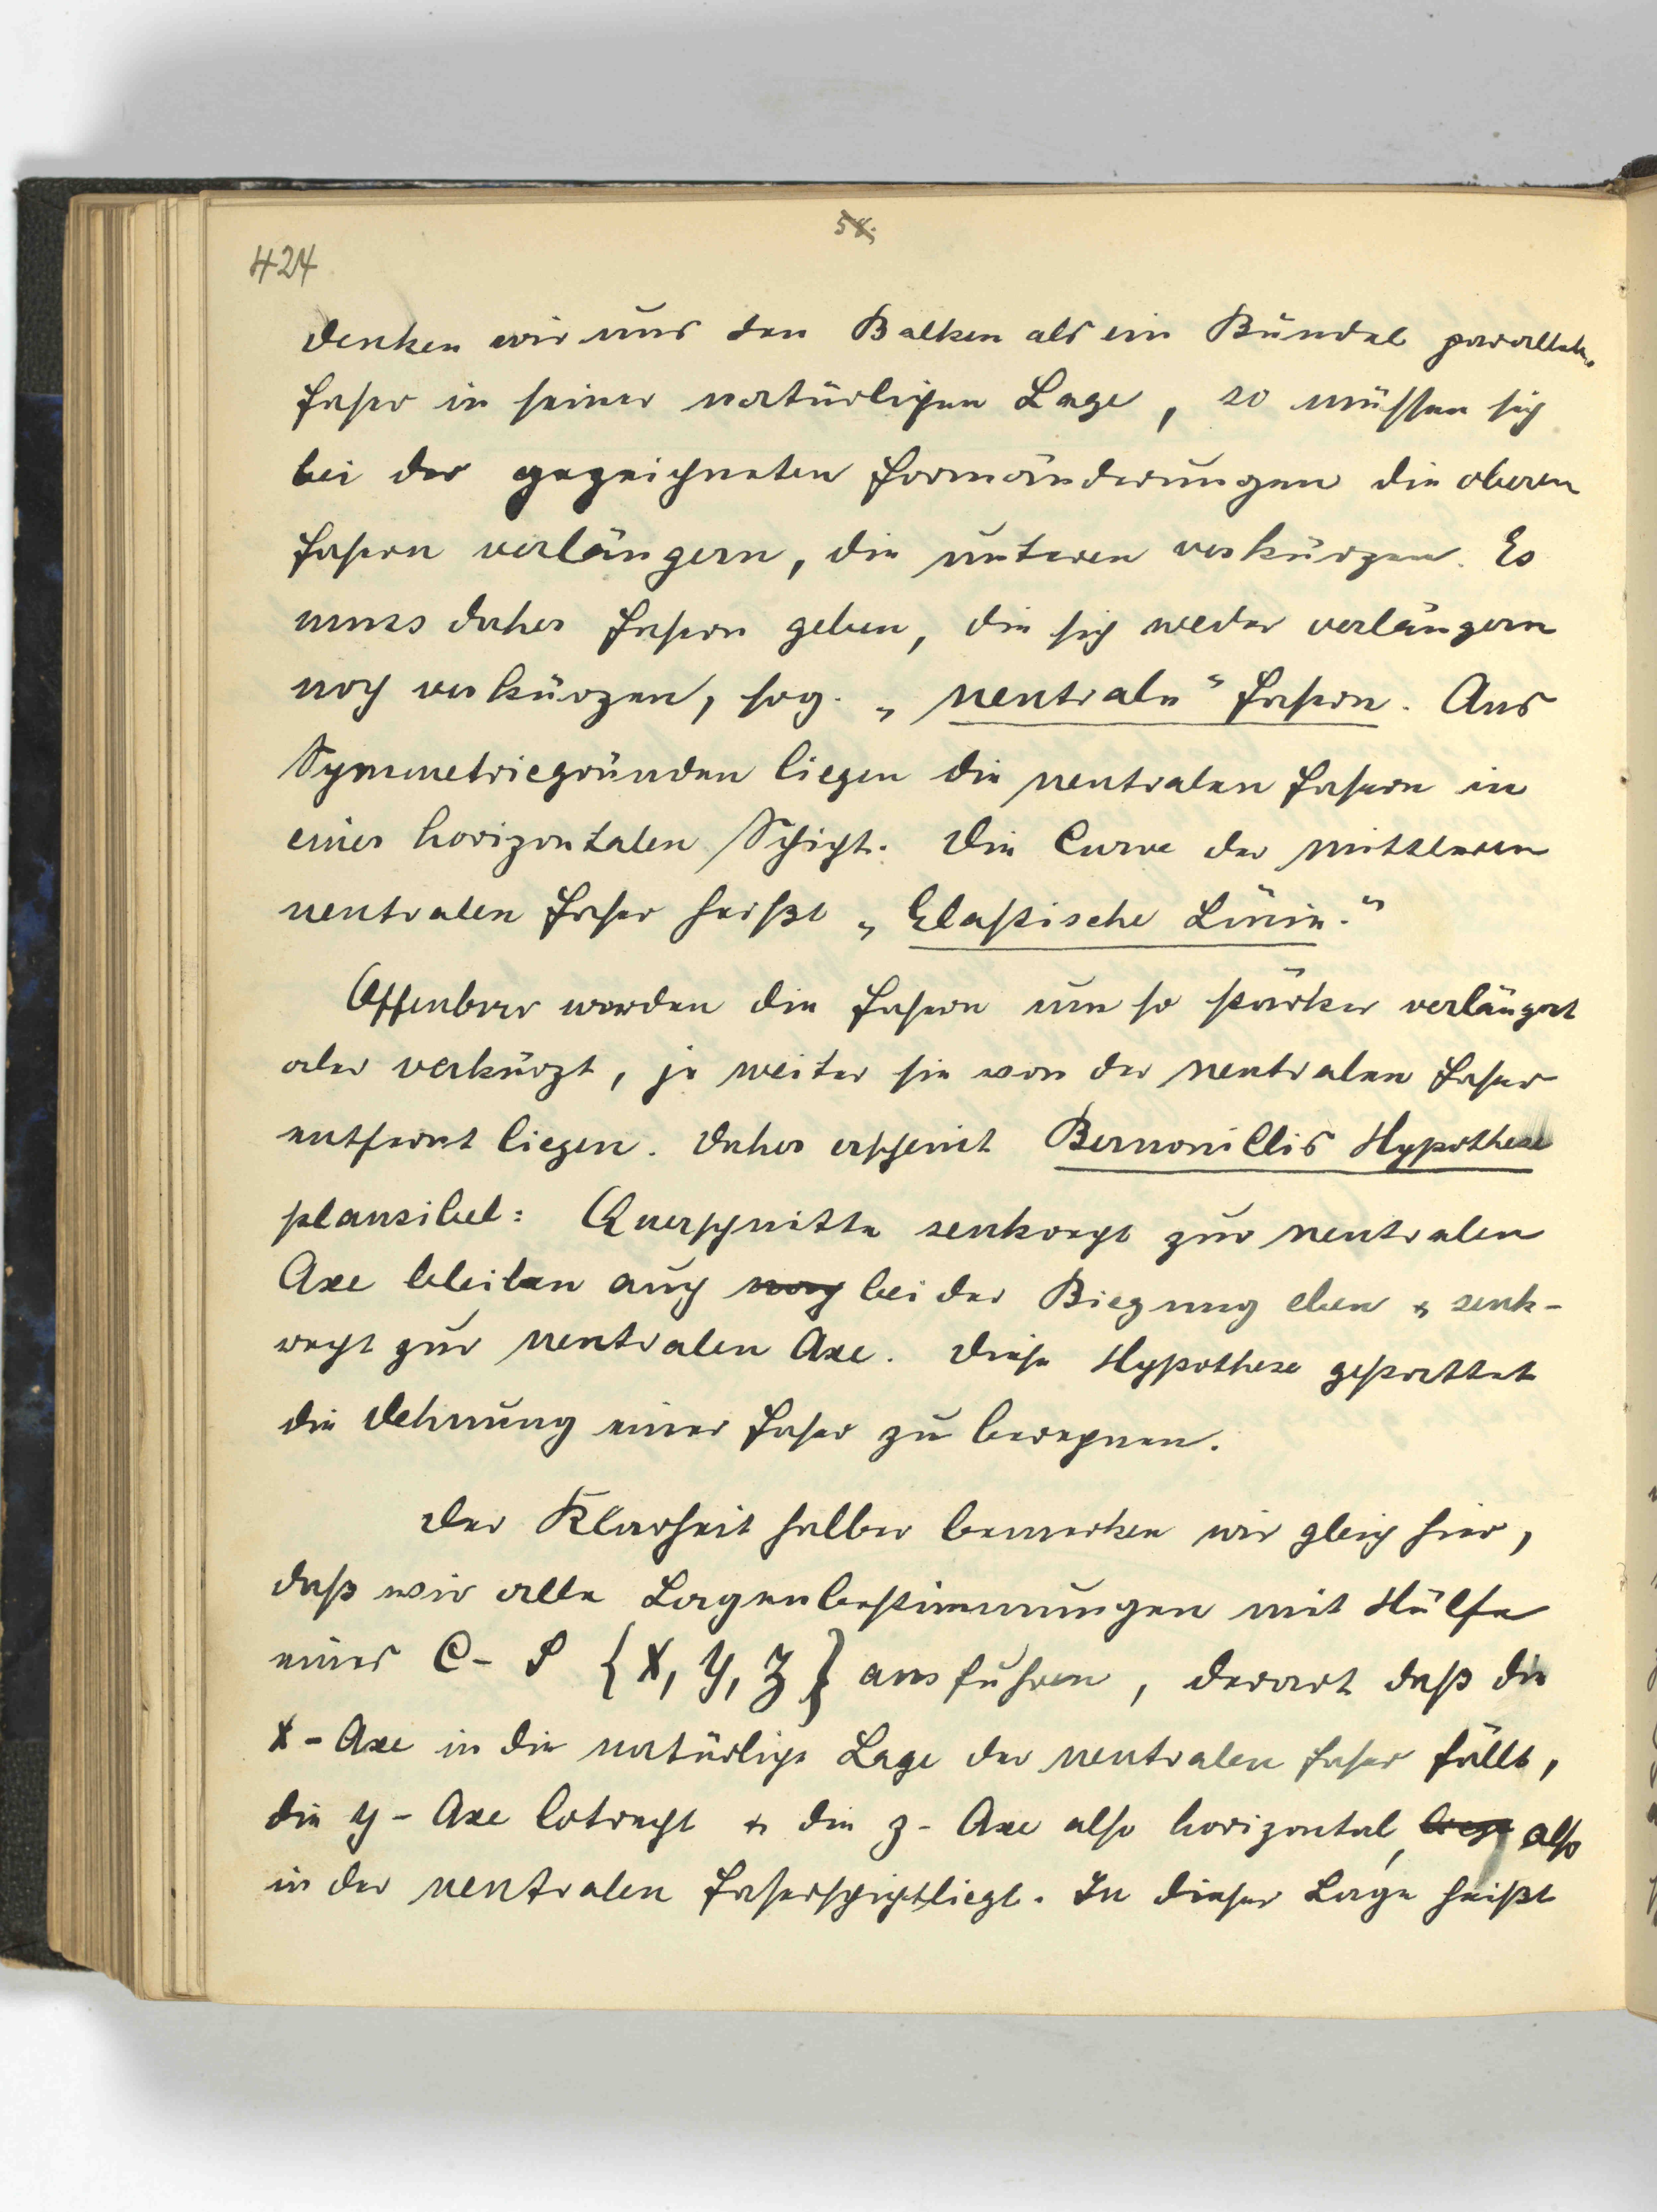 58.
424
Denken wir uns den Balken als ein Bündel paralleler
Faser in seiner natürlichen Lage, so müssen sich
bei der gezeichneten Formänderungen die oberen
Fasern verlängern, die unteren verkürzen. Es
muss daher Fasern geben, die sich weder verlängern
noch verkürzen, sog. „neutrale“ Fasern. Aus
Symmetriegründen liegen die neutralen Fasern in
einer horizontalen Schicht. Die Curve der mittleren
neutralen Faser heißt „Elastische Linie.“
Offenbar werden die Fasern um so stärker verlängert
oder verkürzt, je weiter sie von der neutralen Faser
entfernt liegen. Daher erscheint Bernouillis Hypothese
plausibel: Querschnitte senkrecht zur neutralen
Axe bleiben auch noch bei der Biegung eben & senk-
recht zur neutralen Axe. Diese Hypothese gestattet
die Dehnung einer Faser zu berechnen.
Der Klarheit halber bemerken wir gleich hier,
daß wir alle Lagenbestimmungen mit Hülfe
eines C-S {X, Y, Z} ausführen, derart daß die
X-Axe in die natürliche Lage der neutralen Faser fällt,
die y-Axe lotrecht & die z-Axe also horizontal, also
in der neutralen Faserschicht liegt. In dieser Lage heißt